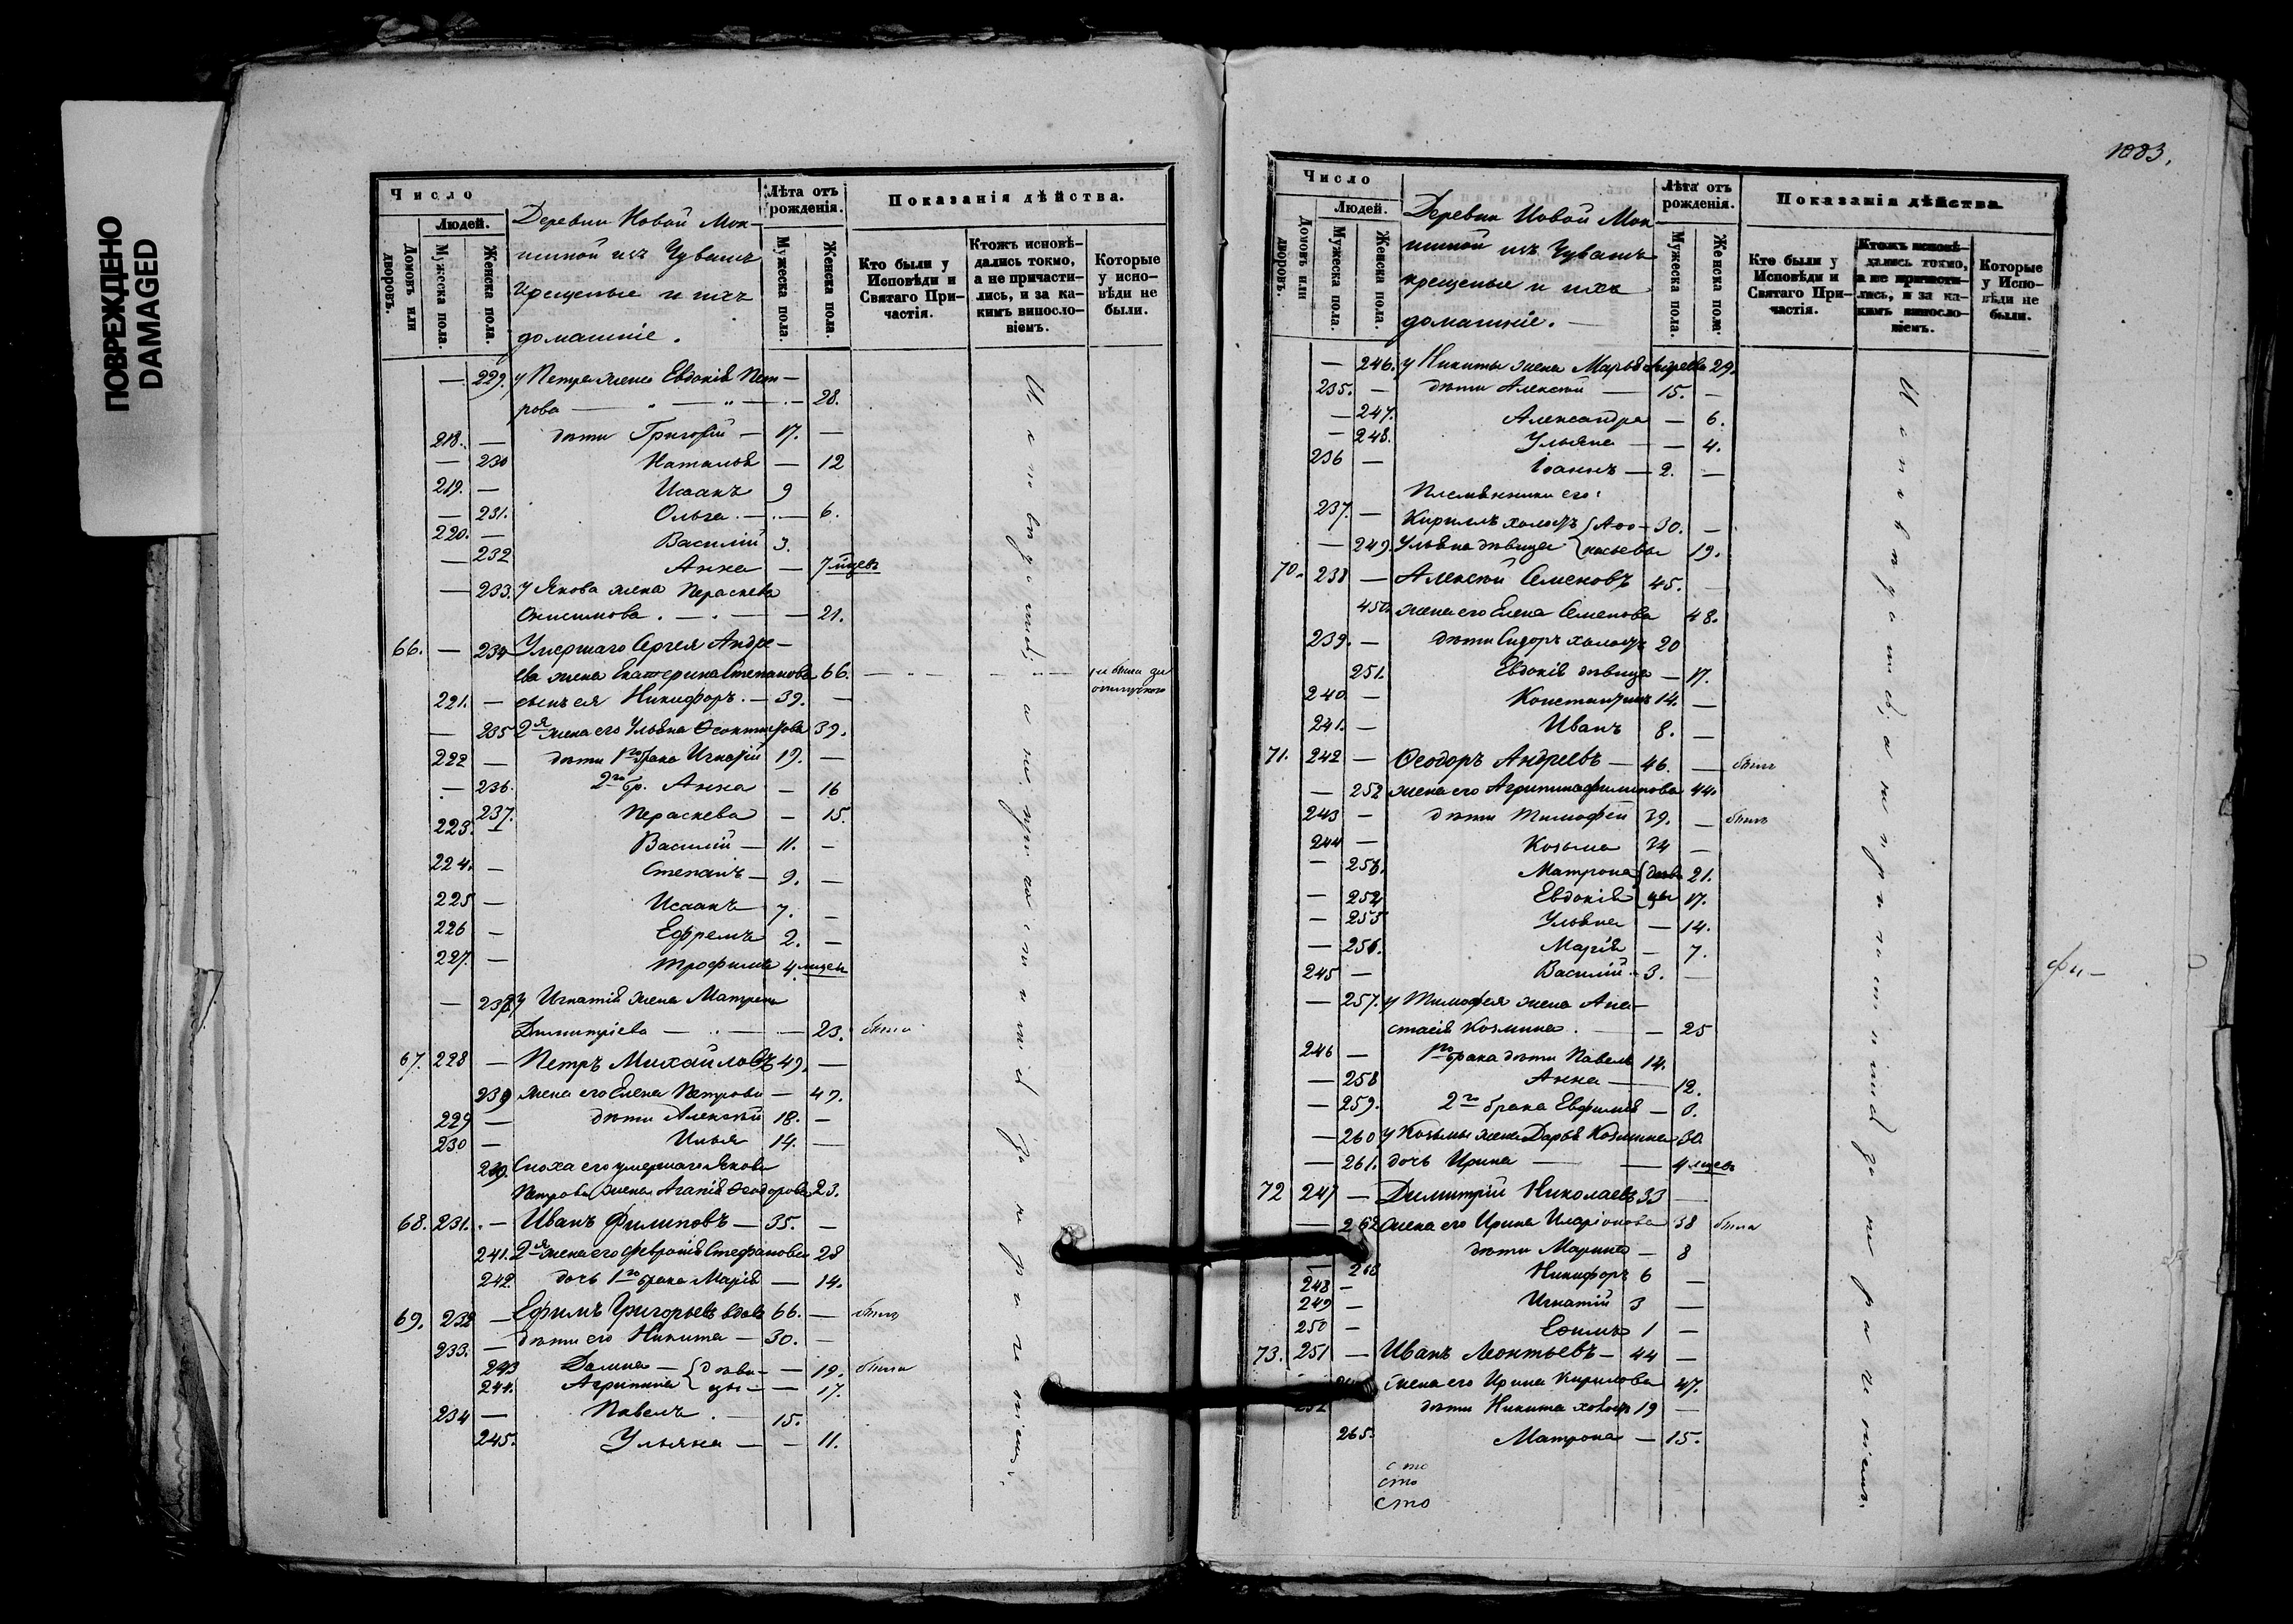 ПОВРЕЖДЕНО
DAMAGED
Число
Людей.
Домовъ или дворовъ.
Мужеска пола.
Женска пола.
Деревни Новой Мок-
шиной изъ Чувашъ
крещеные и ихъ
домашніе.
Лѣта отъ рожденія.
Мужеска пола.
Женска пола.
Показанія дѣйства.
Кто были у Исповѣди и Святаго При-частія.
Ктожъ исповѣ-дались токмо, а не причасти-лись, и за ка-кимъ винос­ло-віемъ.
Которые у испо-вѣди не были.
— 229. у Петра жена Евдокія Пет-
рова — 28.
218. — дѣти Григорій — 17. —
— 230 Наталья — 12
219. — Исаакъ 9
— 231. Ольга — 6.
220. — Василій 3.
— 232 Анна — 7 мцевъ
— 233. у Якова жена Параскева
Онисимова — 21.
66. — 234 Умершаго Сергея Андре-
ева жена Екатерина Степанова 66. не была за
221. — сынъ ея Никифоръ. — 39. —
— 235 2я жена его Ульяна 39.
222 — дѣти 1го брака Игнатій 19. —
— 236. 2го бр. Анна — 16
237. Параскева — 15.
223. — Василій — 11. —
224. — Степанъ — 9. —
225 — Исаакъ 7. —
226 — Ефремъ 2. —
227. — Трофимъ 4 мцевъ
— у Игнатія жена Матрена
Димитріева — 23. была
67. 228 — Петръ Михайловъ 49. —
239 жена его Елена Петрова — 49.
229 — дѣти Алексѣй 18. —
230 — Илья 14. —
Сноха его умершаго Якова
Петрова жена Агапія Ѳеодорова 23.
68. 231. — Иванъ Филиповъ — 35. —
241. 2я жена его Февронія Стефанова 28
242. дочь 1го брака Марія — 14.
69. 232 — Ефимъ Григорьевъ вдовъ 66. — былъ
233. — дѣти его Никита — 30. —
243 Домна — { дѣви- — 19. были
244. Агрипина { цы — 17.
234 — Павелъ — 15.
245. Ульяна — 11.
Исповѣдались а не причастились за нерачніемъ.
1083.
Число
Людей.
Домовъ или дворовъ.
Мужеска пола.
Женска пола.
Деревни Новой Мок-
шиной изъ Чувашъ
крещеные и ихъ
домашніе. —
Лѣта отъ рожденія.
Мужеска пола.
Женска пола.
Показанія дѣйства.
Кто были у Исповѣди и Святаго При-частія.
Ктожъ исповѣ-дались токмо, а не причасти-лись, и за ка-кимъ винос­ло-віемъ.
Которые у Испо-вѣди не были.
— 246. у Никиты жена Марья Андреева 29.
235. — дѣти Алексѣй — 15. —
— 247. Александра — 6.
— 248. Ульяна — 4.
236 — Іоаннъ — 2. —
Племянники его:
237. — Кирилъ холостъ { Аѳо- 30. —
— 249. Ульяна дѣвица { насьевы 19.
70. 238 — Алексѣй Семеновъ 45. —
450. жена его Елена Семенова 48.
239. — дѣти Сидоръ холостъ 20
251. Евдокія дѣвица — 17.
240. — Константинъ 14. —
241. — Иванъ 8. —
71. 242 — Ѳеодоръ Андреевъ — 46. — былъ
— 252 жена его Агрипина Филипова 44.
243 — дѣти Тимофей 39. — былъ
244 — Козьма 34 —
— 253. Матрона { дѣви 21.
— 254 Евдокія { цы 17.
— 255 Ульяна — 14.
— 256. Марія — 7.
245 — Василій — 3. —
— 257. у Тимофея жена Ана-
стасія Козмина — 25
246 — 1го брака дѣти Павелъ 14.
— 258 Анна — 12.
— 259. 2го брака Евфимія — 8.
— 260 у Козьмы жена Дарья Козмина 30.
— 261. дочь Ирина — 4 мцевъ
72 247 — Димитрій Николаевъ 33 —
— 262 жена его Ирина Иларіонова 38 была
263 дѣти Марина — 8
248 — Никифоръ 6 —
249 — Игнатій 3 —
250 — Ефимъ 1 —
73. 251 — Иванъ Леонтьевъ — 44 —
жена его Ирина Кирилова 47.
252 дѣти Никита холостъ 19 —
265. Матрона — 15.
сто
сто
сто